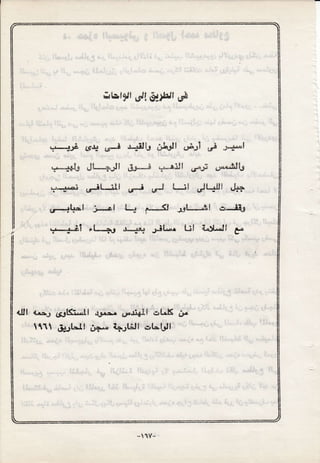 فى الطريق إلى الواحات
اسير فى أرض الوطن والقيد فى يدى غريب
والشمس ترمى الذهب فوق الرجال ولهيب
جبل الليالى انا لى فى قلبى نصيب
وقفت اشاور لكم يا اعز احبابى
مع السلامة انا مسافر بعيد وجاى اغيب
من كلمات المهندس محمود المستكاوى رحمه الله
الواحات الخارجة سجن المحاريق ١٩٦١
-١٦٧-